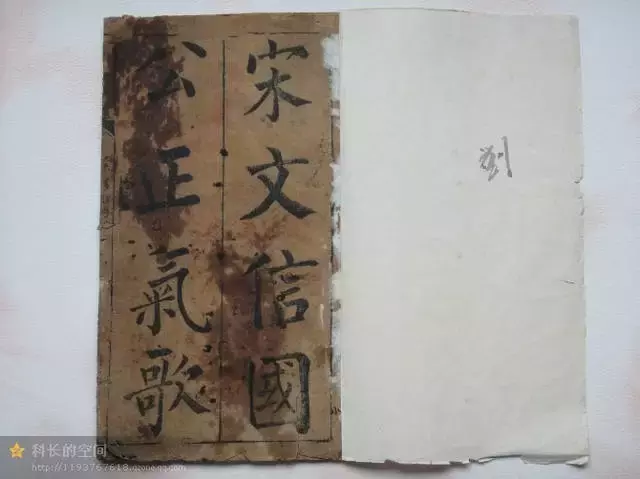 宋文信國
公正氣歌
刘
科长的空间
http://1193767618.qzone.qq.com